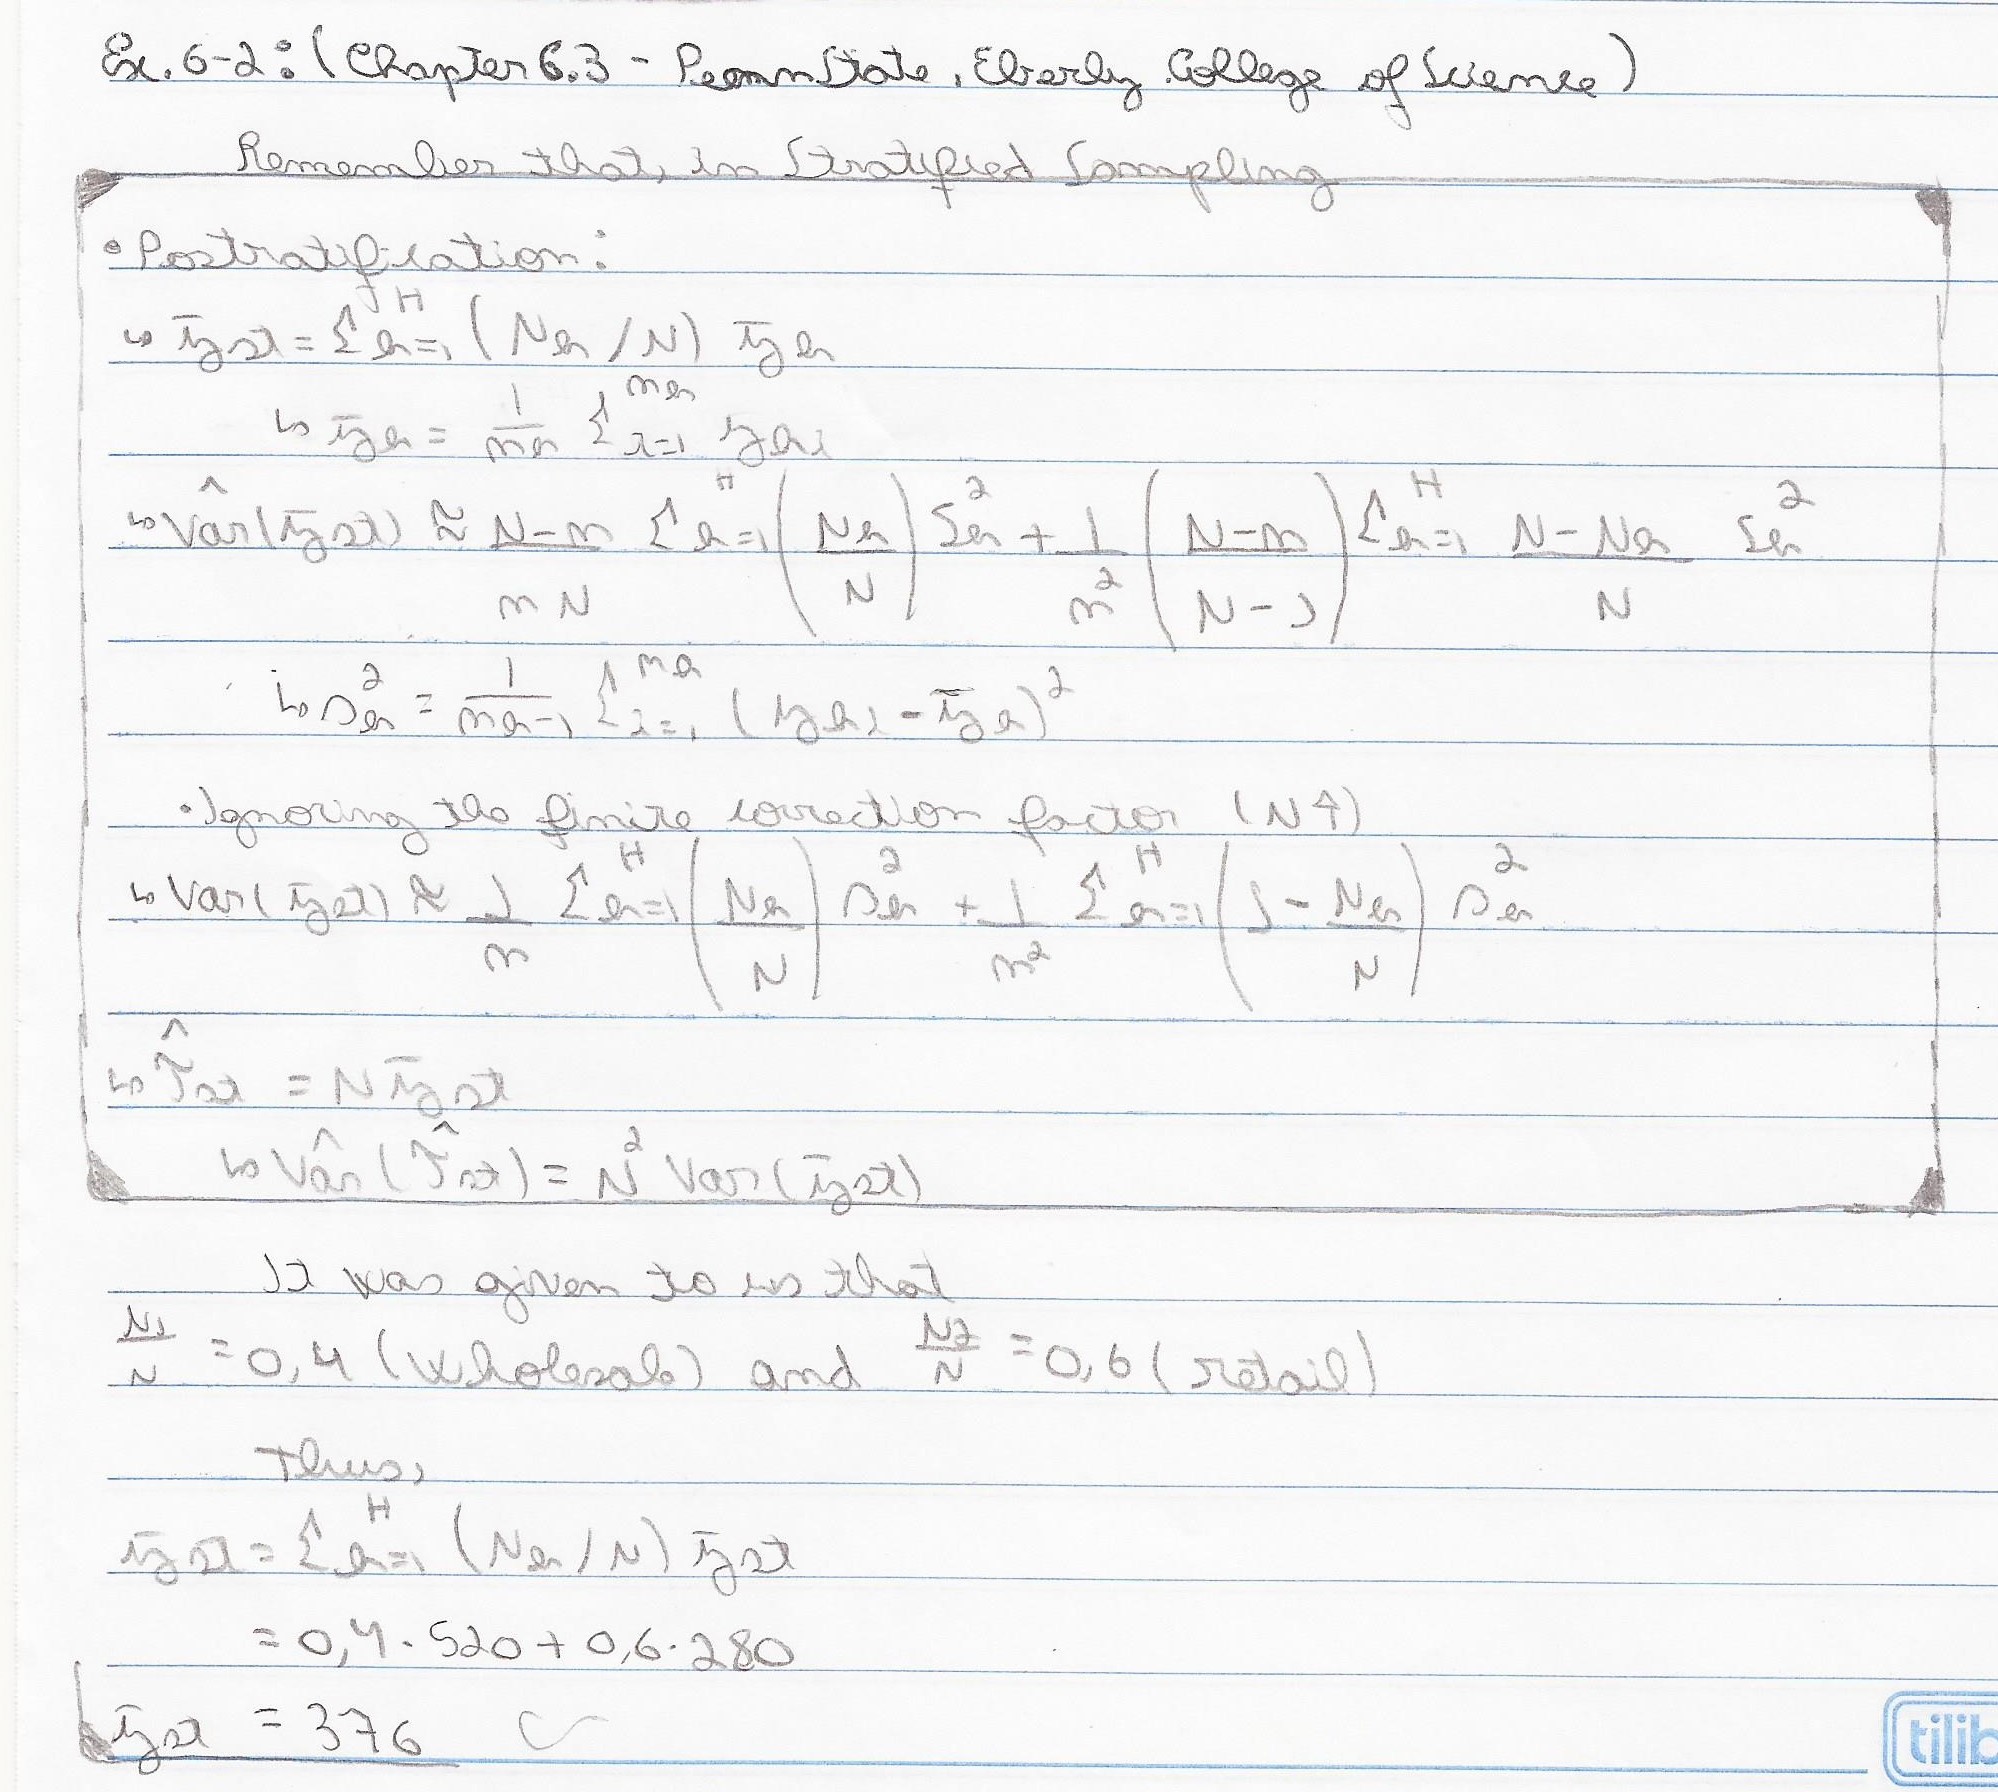 Ex. 6-2: (Chapter 6.3 - PennState, Eberly College of Science)
Remember that, in Stratified Sampling
• Postratification:
↳ ȳst = Σ h=1 ^H (Nh / N) ȳh
↳ ȳh = 1/nh Σ i=1 ^nh yhi
↳ Vâr(ȳst) ≈ N-n/nN Σ h=1 ^H (Nh/N) Sh² + 1/n² (N-n/N-1) Σ h=1 ^H N-Nh/N Sh²
↳ sh² = 1/nh-1 Σ i=1 ^nh (yhi - ȳh)²
• Ignoring the finite correction factor (N↑)
↳ Var(ȳst) ≈ 1/n Σ h=1 ^H (Nh/N) sh² + 1/n² Σ h=1 ^H (1 - Nh/N) sh²
↳ τ̂st = N ȳst
↳ Vâr(τ̂st) = N² Var(ȳst)
It was given to us that
N1/N = 0,4 (wholesale) and N2/N = 0,6 (retail)
Thus,
ȳst = Σ h=1 ^H (Nh / N) ȳst
= 0,4 · 520 + 0,6 · 280
ȳst = 376
tilib